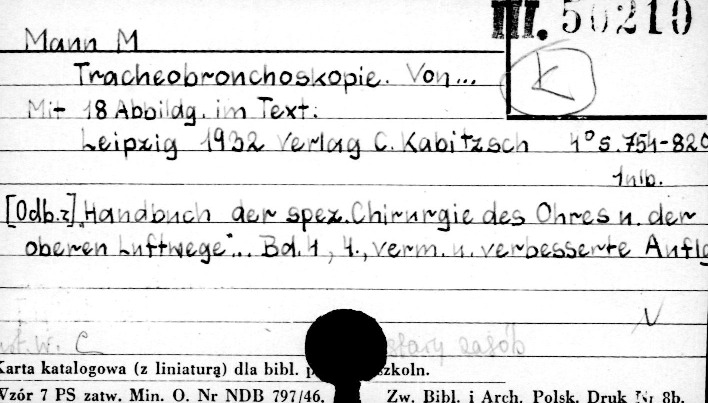 III. 50210
Mann M
K
Tracheobronchoskopie. Von...
Mit 18 Abbildg. im Text.
Leipzig 1932 Verlag C. Kabitzsch 4° s. 754-820
1 nlb.
[Odb. z] „Handbuch der spez. Chirurgie des Ohres u. der
oberen Luftwege"... Bd. 1, 4., verm. u. verbesserte Aufl
N
W. C
stary zasób
Karta katalogowa (z liniaturą) dla bibl. szkoln.
Wzór 7 PS zatw. Min. O. Nr NDB 797/46. Zw. Bibl. i Arch. Polsk. Druk Nr 8b.